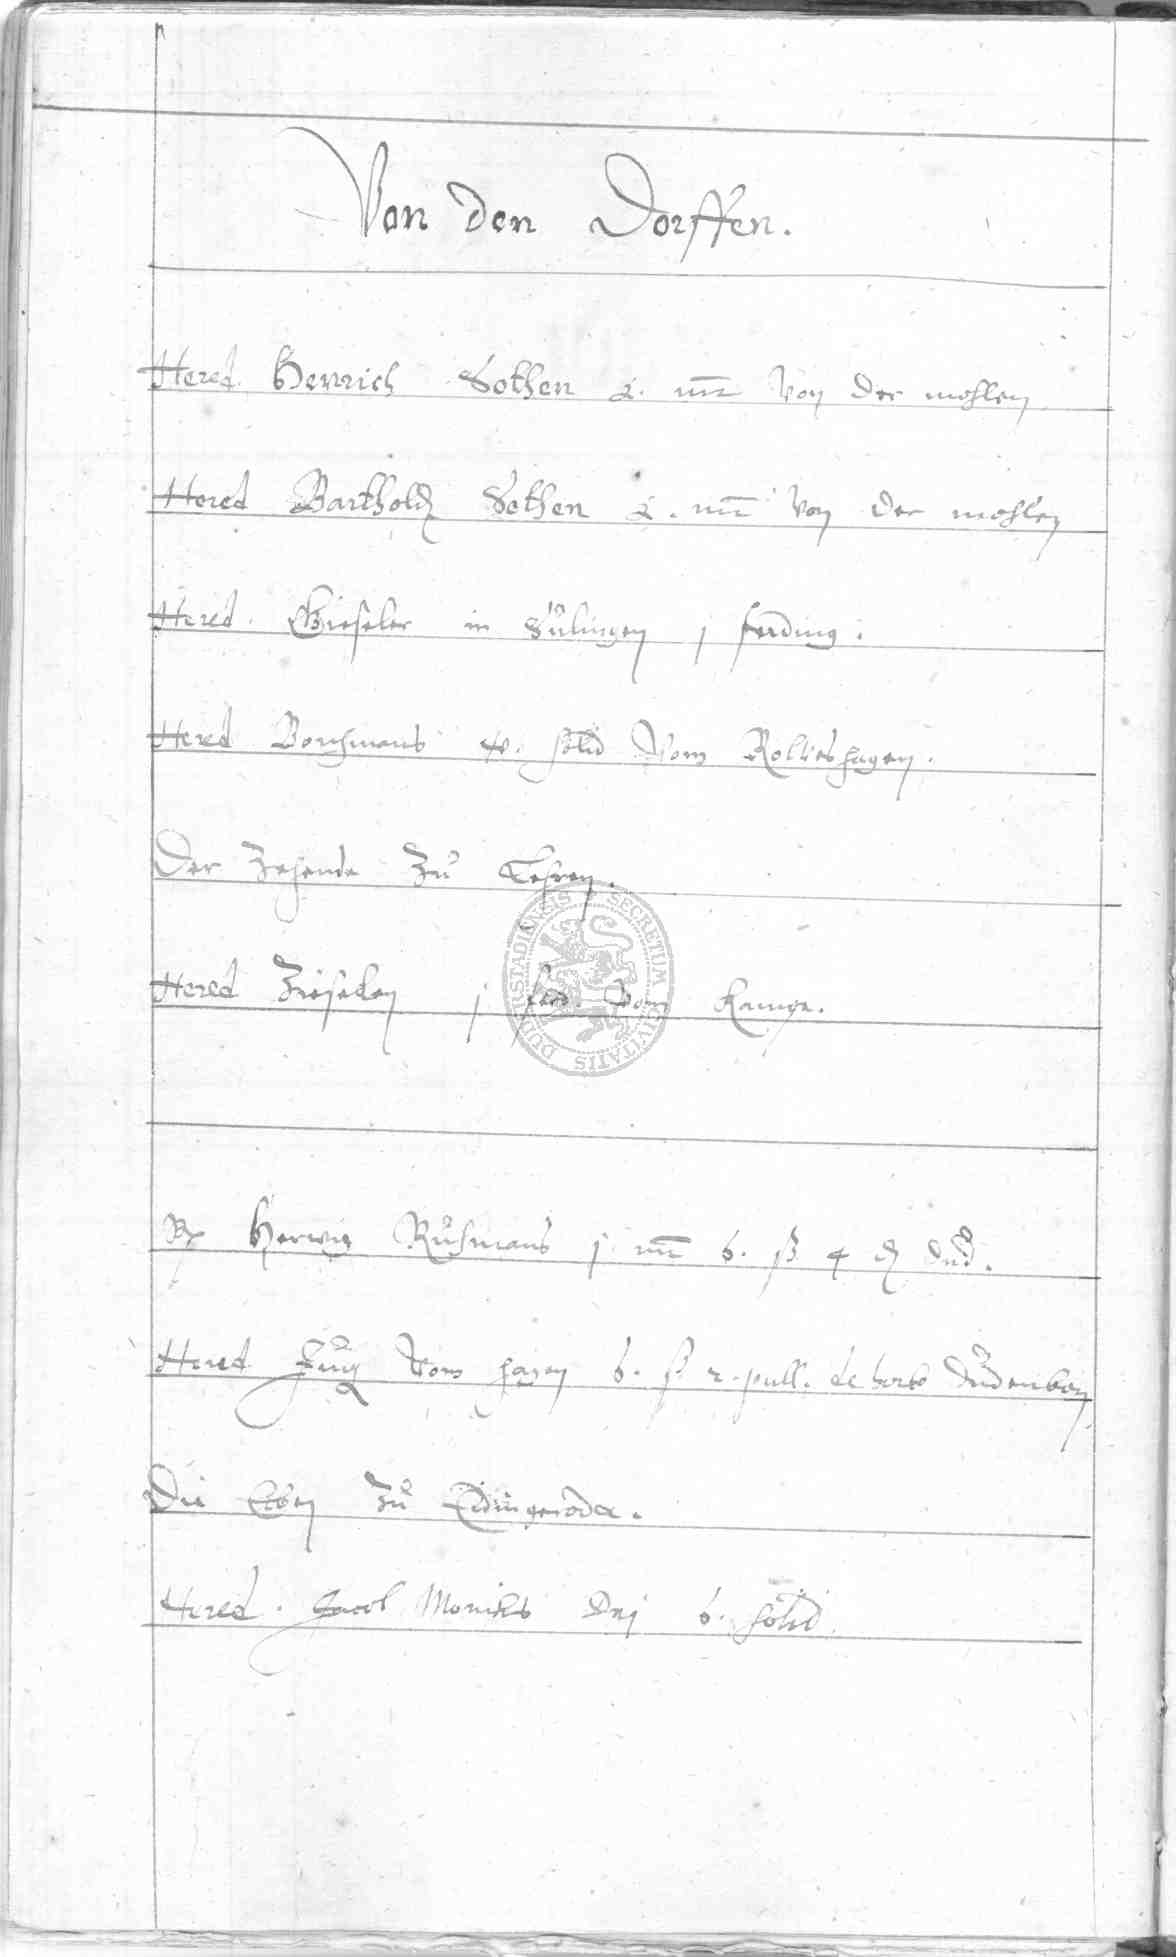 Von den Dorffen.
Hered Henrich Sothen 2. mr Von der mohlen
Hered Barthold Sothen 2. mr Von der mohlen
Hered. Gieseler in Sülingen j ferding.
Hered Borchmans 4. solid Vom Rolveshagen.
Der Zehende Zu
Hered j ferd. Vom Kampe.
DUDERSTADIENSIS SECRETUM CIVITATIS
Rp Herwig Ruhmans j mr 6. ß 4 Dud.
Hered Vom hagen 6. ß 2. pull. de
Die Erben Zu Edingerode.
Hered. Jacob 6. solid